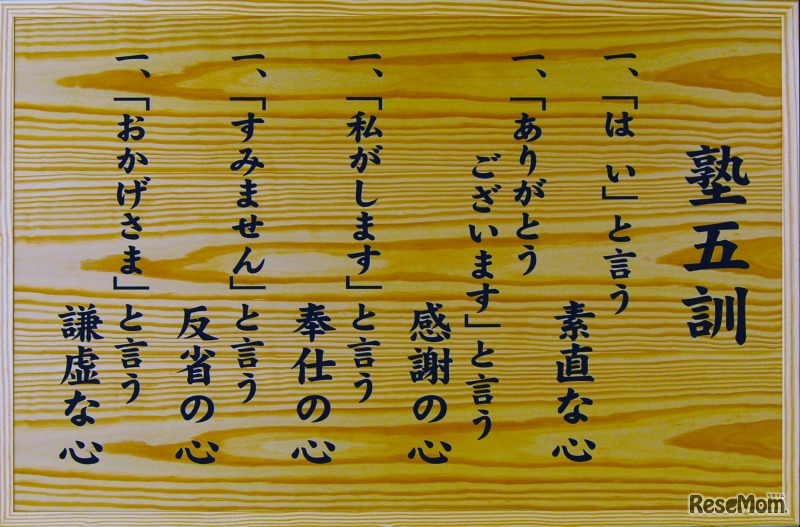 塾五訓
一、「はい」と言う
素直な心
一、「ありがとう
ございます」と言う
感謝の心
一、「私がします」と言う
奉仕の心
一、「すみません」と言う
反省の心
一、「おかげさま」と言う
謙虚な心
リセマム
ReseMom.